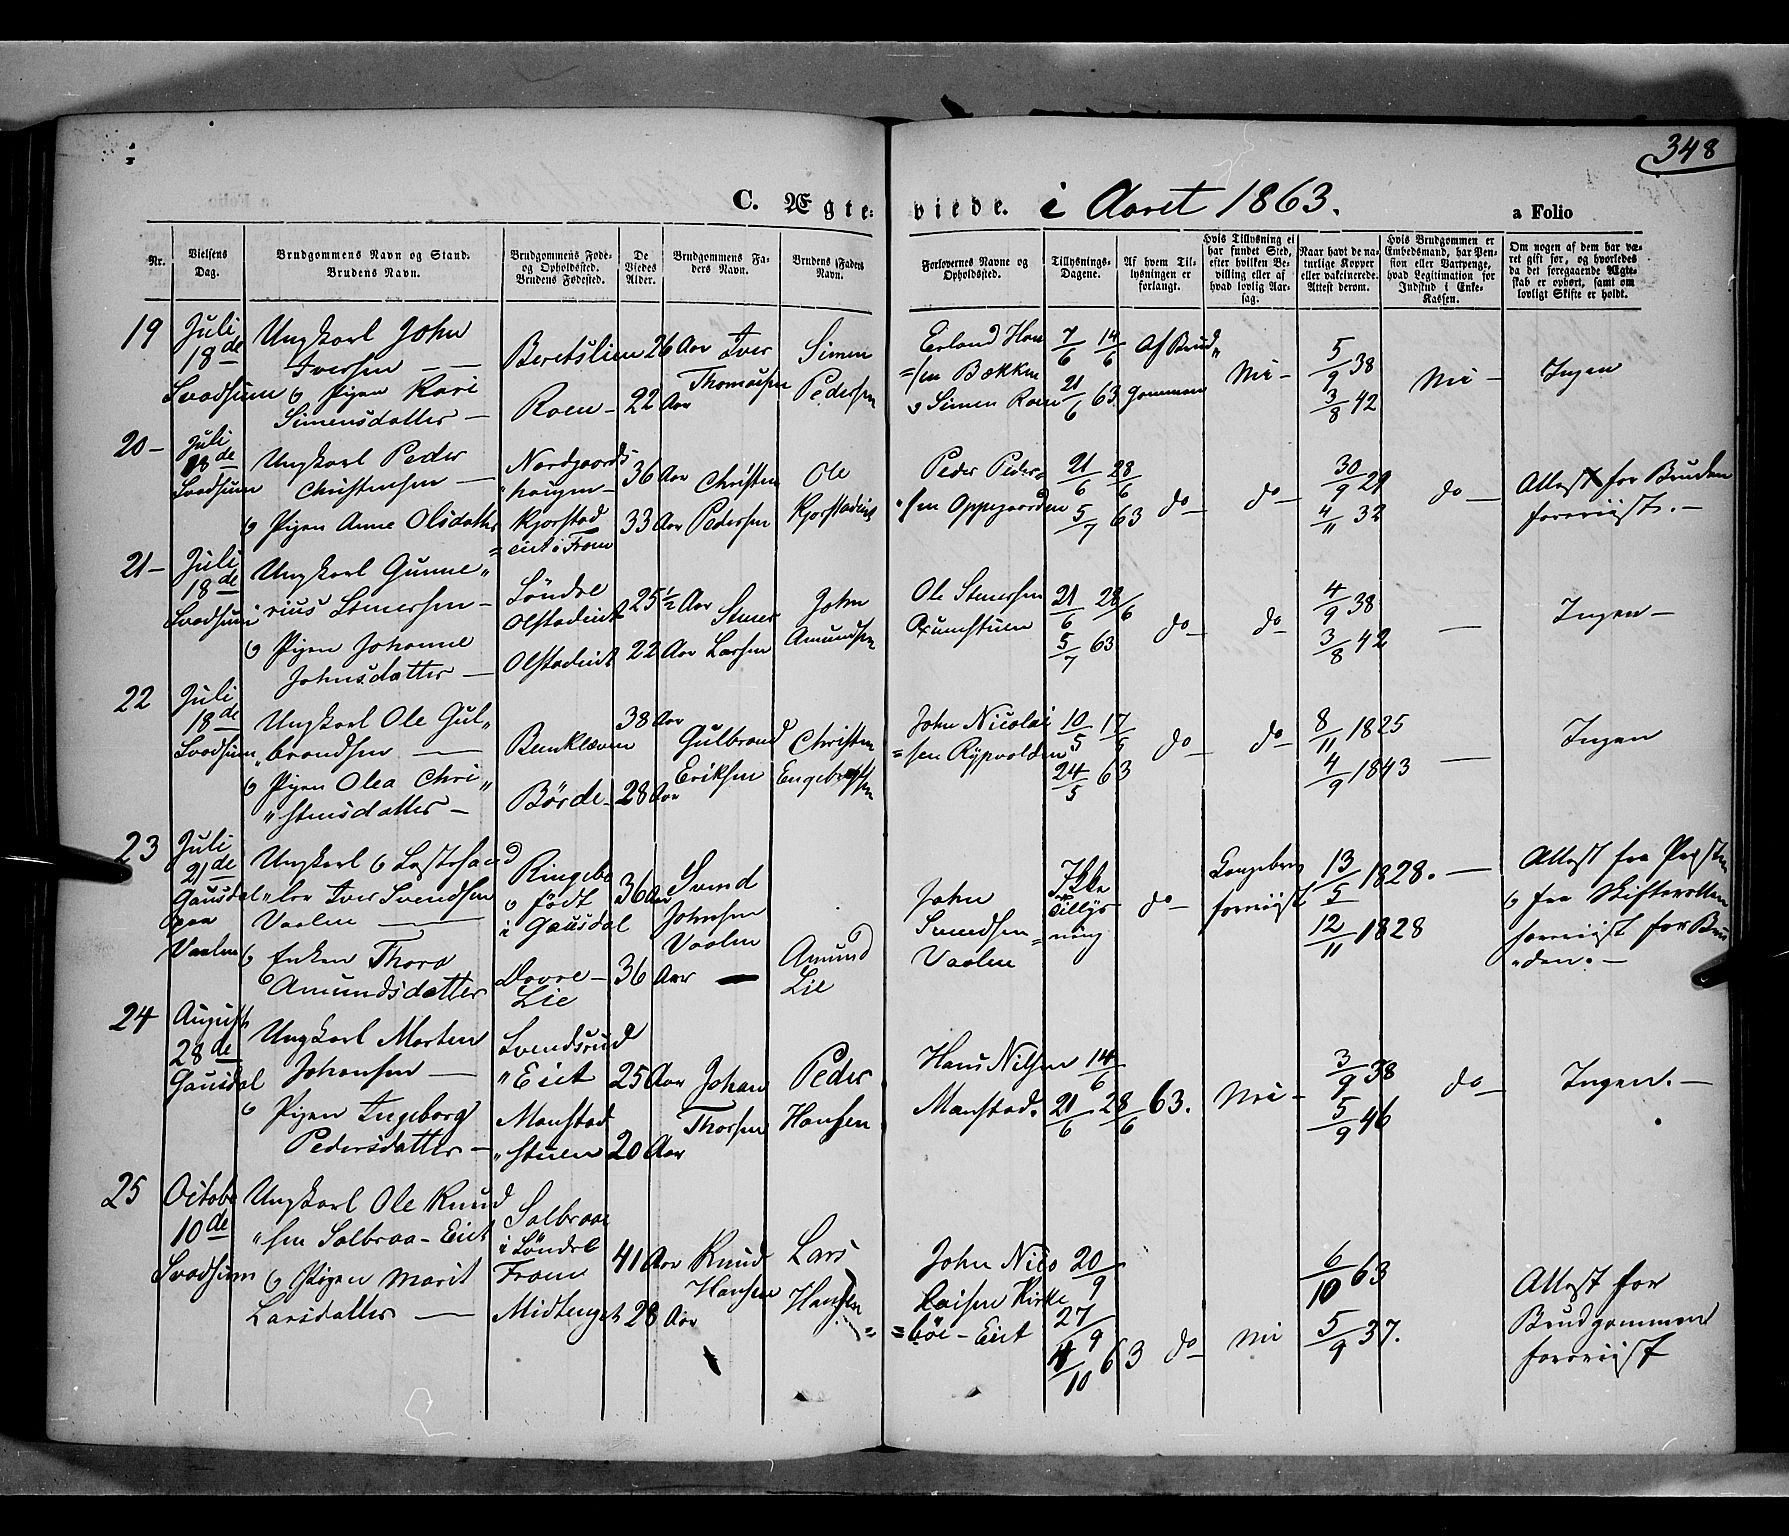 348
C. Ægte- viede. i Aaret 1863.
a Folio
Nr.
Vielsens Dag.
Brudgommens Navn og Stand.
Brudens Navn.
Brudgommens Føde- og Opholdssted.
Brudens Fødested.
De Viedes Alder.
Brudgommens Faders Navn.
Brudens Faders Navn.
Forlovernes Navne og Opholdssted.
Tillysnings-Dagene.
Af hvem Tillysningen er forlangt.
Hvis Tillysning ei har fundet Sted, efter hvilken Bevilling eller af hvad lovlig Aarsag.
Naar havt de naturlige Kopper eller vakcinerede. Attest derom.
Hvis Brudgommen er Embedsmand, har Pension eller Vartpenge, hvad Legitimation for Indskud i Enke-Kassen.
Om nogen af dem har været gift før, og hvorledes da det foregaaende Ægteskab er ophørt, samt om lovligt Skifte er holdt.
19 Juli 18de Svadsum
Ungkarl John Iversen — — & Pigen Kari Simensdatter —
Beretslien
Roen —
26 Aar
22 Aar
Iver Thomassen
Simen Pedersen
Erland Han= =sen Bækken & Simen Roen
7/6 14/6 21/6 63
Af Brud„ gommen
Nei —
5/9 38
3/8 42
Nei —
Ingen
20 — Juli 18de Svadsum
Ungkarl Peder Christensen — & Pigen Anne Olsdatter
Nordgaards„ haugen —
Kjorstad =eiet i Fron
36 Aar
33 Aar
Christen Pedersen
Ole Kjorstadeiet
Peder Peder= sen Oppegaarden
21/6 28/6 5/7 63
do —
do —
30/9 29
4/11 32
do —
Attest for Bruden foreviist. —
21 — Juli 18de Svadsum
Ungkarl Gunne„ rius Stenersen — & Pigen Johanne Johnsdatter —
Söndre Olstadeiet
Olstadeiet
25 1/2 Aar
22 Aar
Stener Larsen
John Amundsen
Ole Stenersen
21/6 28/6 5/7 63
do —
do —
4/9 38
3/8 42
—
Ingen —
22 Juli 18de Svadsum
Ungkarl Ole Gul„ „brandsen — & Pigen Olea Chri„ „stensdatter —
Benklæven
Börde —
38 Aar
28 Aar
Gulbrand Eriksen
Christen Engebretsen
John Nicolai =sen Rypvolden
10/5 17/5 24/5 63
do —
do —
8/11 1825
4/9 1843
—
Ingen
23 Juli 21de Gausdal paa Vaalen
Ungkarl & Iver Svendsen Vaalen — & Enken Thora Amundsdatter
Ringebo & födt i Gausdal
Dovre — Lie
36 Aar
36 Aar
Svend Johnsen Vaalen
—
Amund Lie
John Svendsen Vaalen
Ikke Tillys= ning
do —
foreviist
13/5 1828. —
12/11 1828
Attest fra Præsten & fra Skifteretten foreviist for Bru „den. —
24 August 28de Gausdal
Ungkarl Morten Johansen — & Pigen Ingeborg Pedersdatter —
Svendsrud „Eiet
Manstad „stuen
25 Aar
20 Aar
Johan Thorsen
Peder Hansen
Hans Nilsen Manstad.
14/6 21/6 28/6 63.
Nei —
3/9 38
5/9 46
do —
Ingen. —
25 Octobr 10de Svadsum
Ungkarl Ole Knud „sen Solbraa-Eiet & Pigen Marit Larsdatter —
Solbraa i Söndre Fron
Midtenget
41 Aar
28 Aar
Knud Hansen
Lars Hansen
John Nico laisen Kirke =böe-Eiet
20/9 27/9 4/10 63
do —
Nei
6/10 63
5/9 37.
Attest for Brudgommen foreviist